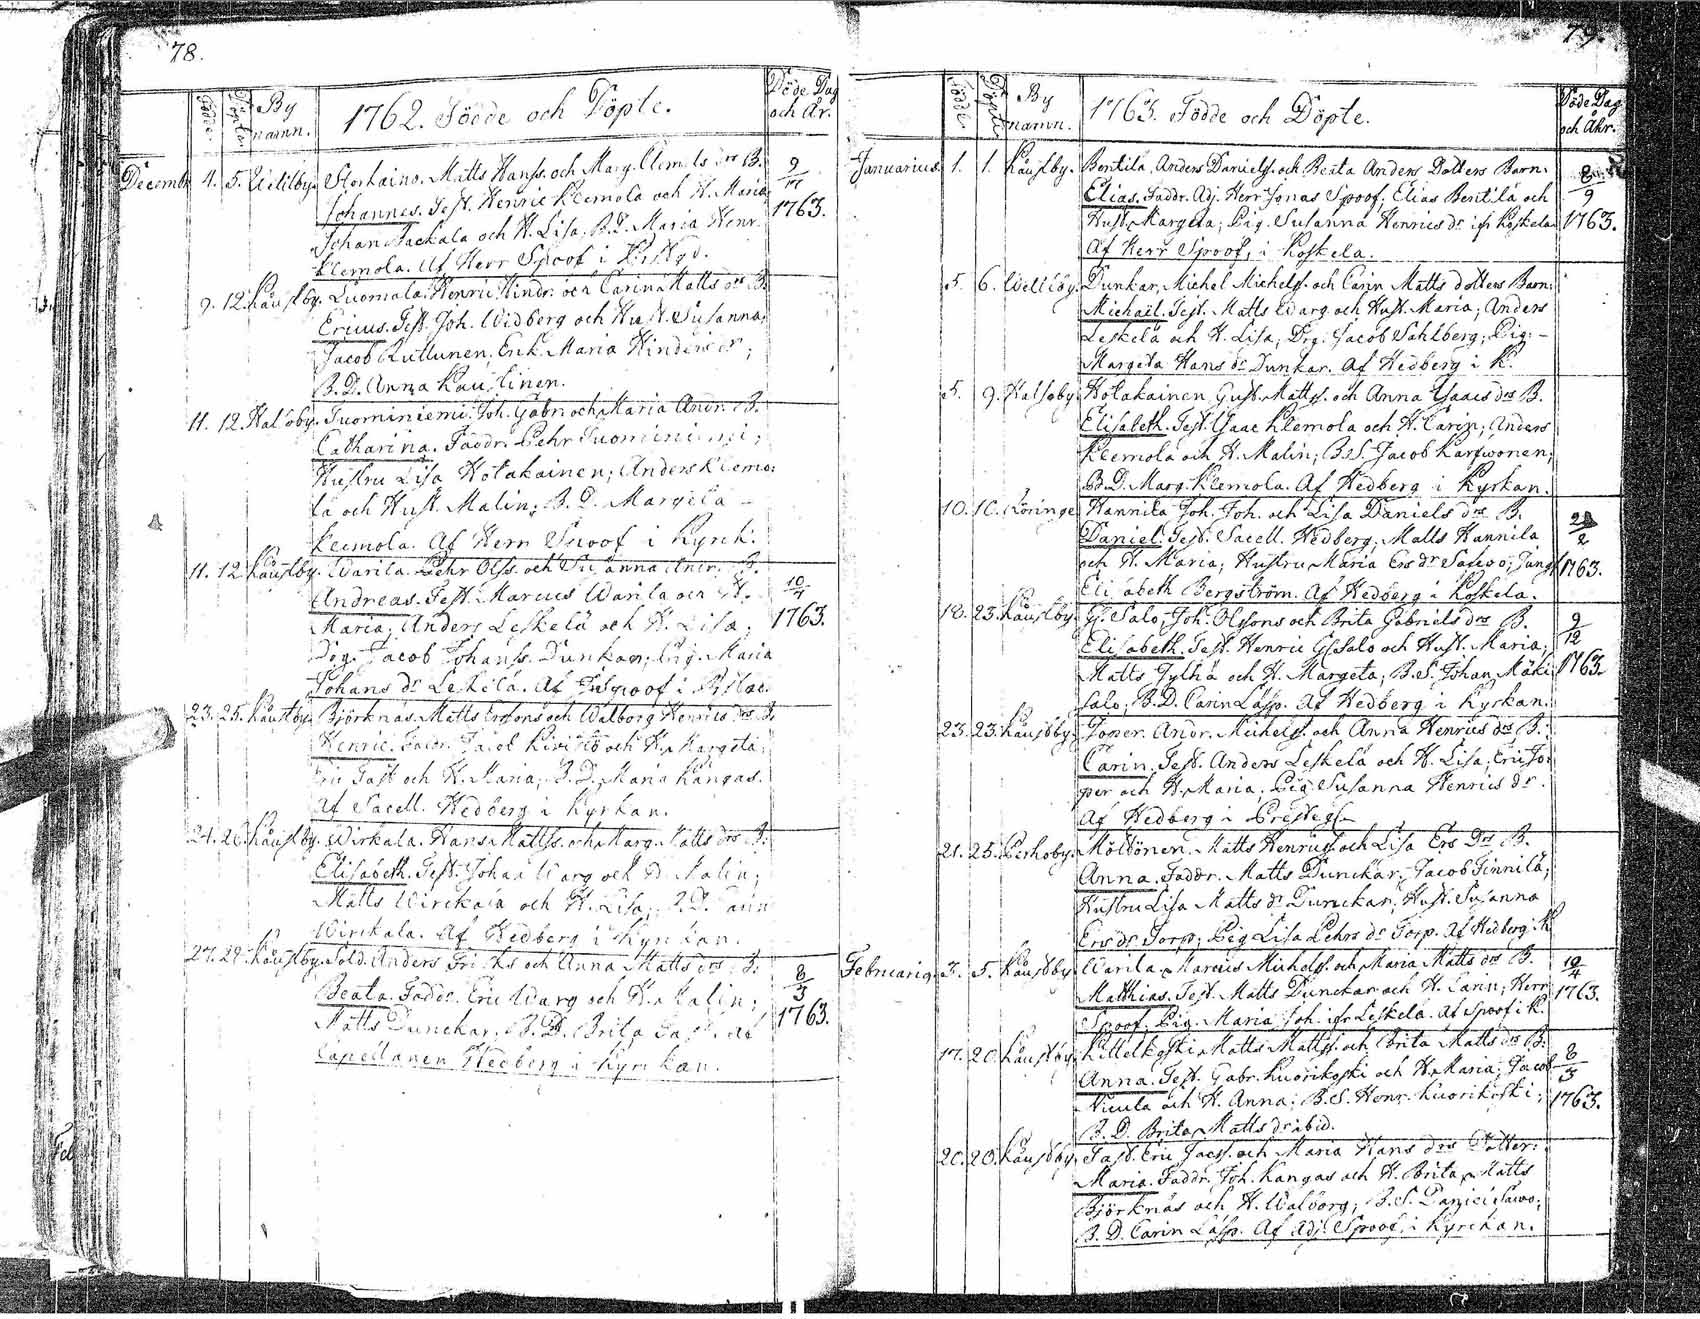 78.
Födde Döpte By namn. 1762. Födde och Döpte. Döde Dag och År.
Decembr 4. 5. Storhaino. Matts Hanss. och Marg. Clemets drs B. 9
Johannes. Test. Henric Klemola och H. Maria 1763.
Johan och H. Lisa. B.D. Maria Henr.
Klemola. Af Herr Spoof i
9. 12. Kaustby. Luomala. Henric Hindr. och Carin Matts drs B.
Ericus. Test. Joh. Widberg och Hust. Susanna;
Jacob Enk. Maria Hinders dr;
B.D. Anna Kaustinen.
11. 12. Halsoby. Tuominiemi. Joh. Gabr. och Maria Andr. B.
Catharina. Faddr. Pehr Tuominiemi;
Hustru Lisa Hotakainen; Anders Klemo-
la och Hust. Malin; B.D. Margeta -
Klemola. Af Herr Spoof i Kyrck.
11. 12. Kaustby. Warila. Pehr Olss. och Susanna Andr. B. 10
Andreas. Test. Marcus Warila och H. 4
Maria; Anders Leskelä och H. Lisa. 1763.
Drg. Jacob Johanss. Dunkar; Pig. Maria
Johans dr Leskelä. Af Spoof i
23. 25. Kaustby. Björknäs. Matts Erssons och Walborg Henrics drs B.
Henric. Faddr. Jacob Kivistö och H. Margeta;
Eric Fast och H. Maria; B.D. Maria Kangas.
Af Sacell. Hedberg i Kyrkan.
24. 26. Kaustby. Wirkala. Hans Mattss. och Marg. Matts drs B.
Elisabeth. Test. Johan Warg och H. Malin;
Matts Wirckala och H. Lisa; B.D. Carin
Wirckala. Af Hedberg i Kyrckan.
27. 29. Kaustby. Sold. Anders Frisks och Anna Matts drs B. 8
Beata. Faddr. Eric Warg och H. Malin; 3
Matts Dunckar. B.D. Brita Fast. Af 1763.
Capellanen Hedberg i Kyrckan.
79.
Födde Döpte By namn. 1763. Födde och Döpte. Döde Dag och Åhr.
Januarius. 1. 1. Kaustby. Bentilä, Anders Danielss. och Beata Anders Dotters Barn. 8
Elias. Faddr. Adj. Herr Jonas Spoof; Elias Bentilä och 9
Hust. Margeta; Pig. Susanna Henrics dr ifr Koskela 1763.
Af Herr Spoof, i Koskela.
5. 6. Wetilby. Dunkar, Michel Michelss. och Carin Matts dotters Barn:
Michaël. Test. Matts Warg och Hust. Maria; Anders
Leskelä och H. Lisa; Drg. Jacob Sahlberg; Pig: -
Margeta Hans dr Dunkar. Af Hedberg i K.
5. 9. Halsoby. Hotakainen, Gust. Mattss. och Anna Isaacs drs B.
Elisabeth. Test. Isaac Klemola och H. Carin; Anders
Klemola och H. Malin; B.S. Jacob Karfwonen;
B.D. Marg. Klemola. Af Hedberg i Kyrkan.
10. 10. Köringe Hannila Joh. Joh. och Lisa Daniels drs B.
Daniel. Test. Sacell. Hedberg; Matts Hannila 2
och H. Maria; Hustru Maria Ers dr Sawo; Jungf. 1763.
Elisabeth Bergström. Af Hedberg i Koskela.
18. 23. Kaustby. G. Salo, Joh. Olssons och Brita Gabriels drs B. 9
Elisabeth. Test. Henric G. Salo och Hust. Maria; 12
Matts Jylhä och H. Margeta; B.S. Johan Mäki- 1763.
salo; B.D. Carin Läsp. Af Hedberg i Kyrkan.
23. 23. Kaustby. Joper. Andr. Michelss. och Anna Henrics drs B.
Carin. Test. Anders Leskelä och H. Lisa; Eric Jo-
per och H. Maria. Pig. Susanna Henrics dr.
Af Hedberg i
21. 25. Perhoby. Möttönen. Matts Henricss. och Lisa Ers Drs B.
Anna. Faddr. Matts Dunckar; Jacob Finnilä;
Hustru Lisa Matts dr Dunckar; Hust. Susanna
Ers dr Torp; Pig Lisa Pehrs dr Torp. Af Hedberg i K.
Februarius. 3. 5. Kaustby. Warila, Marcus Michelss. och Maria Matts drs B. 10
Matthias. Test. Matts Dunckar och H. Carin; Herr 4
Spoof; Pig. Maria Joh. ifr Leskelä. Af Spoof i K. 1763.
17. 20. Kaustby. Kittelkoski Matts Mattss. och Brita Matts drs B. 8
Anna. Test. Gabr. Kuorikoski och H. Maria; Jacob 3
Nicula och H. Anna; B.S. Henr. Kuorikoski; 1763.
B.D. Brita Matts dr ibid.
20. 20. Kaustby. Fast. Eric Jacss. och Maria Hans drs Dotter:
Maria. Faddr. Joh. Kangas och H. Brita; Matts
Björknäs och H. Walborg; B.S. Daniel Sawo;
B.D. Carin Läsp. Af Adj. Spoof, i Kyrckan.